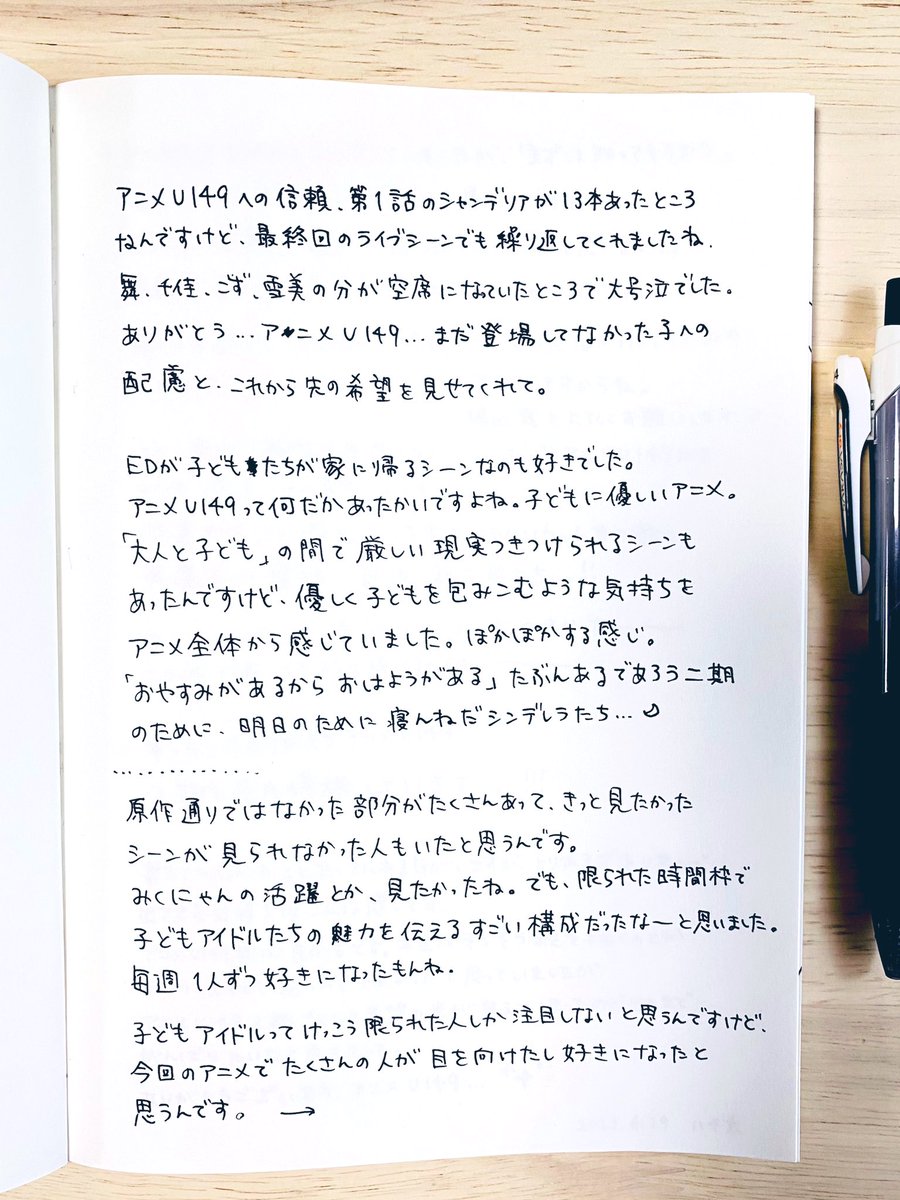 アニメU149への信頼、第1話のシャンデリアが13本あったところ
なんですけど、最終回のライブシーンでも繰り返してくれましたね.
舞、千佳、こず、雪美の分が空席になっていたところで大号泣でした。
ありがとう…アニメU149…まだ登場してなかった子への
配慮と、これから先の希望を見せてくれて。
EDが子どもたちが家に帰るシーンなのも好きでした。
アニメU149って何だかあったかいですよね。子どもに優しいアニメ。
「大人と子ども」の間で厳しい現実つきつけられるシーンも
あったんですけど、優しく子どもを包みこむような気持ちを
アニメ全体から感じていました。ぽかぽかする感じ。
「おやすみがあるからおはようがある」たぶんあるであろう二期
のために、明日のために寝んねだシンデレラたち…
原作通りではなかった部分がたくさんあって、きっと見たかった
シーンが見られなかった人もいたと思うんです。
みくにゃんの活躍とか、見たかったね。でも、限られた時間枠で
子どもアイドルたちの魅力を伝えるすごい構成だったなーと思いました。
毎週1人ずつ好きになったもんね.
子どもアイドルってけっこう限られた人しか注目しないと思うんですけど、
今回のアニメでたくさんの人が目を向けたし好きになったと
思うんです。 →